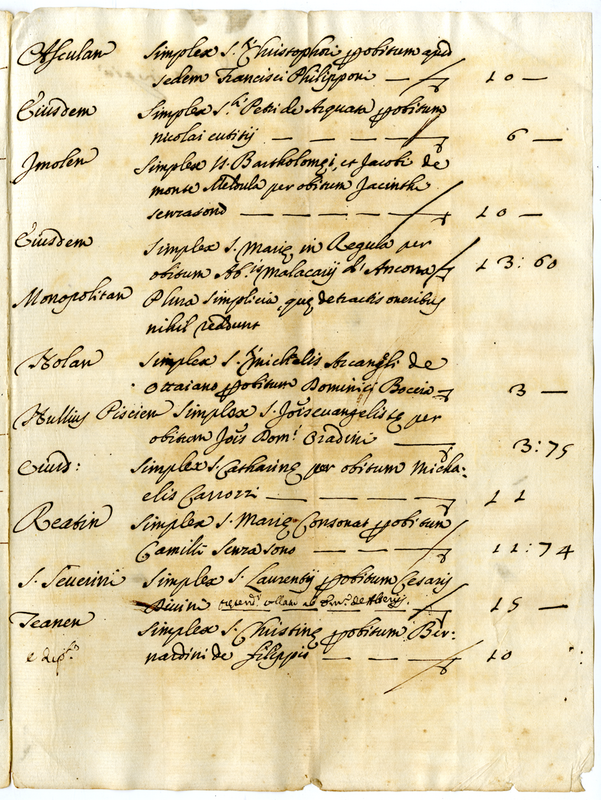 Asculan Simplex S. Christophori p obitum apud
sedem Francisci Philipponi — 10 —
Eiusdem Simplex S.ti Petri de Arquata p obitum
Nicolai eutitij — — — 6 —
Imolen Simplex SS. Bartholomęi, et Jacobi de
monte Meldula per obitum Jacinthi
senzasono — — — — 10 —
Eiusdem Simplex S. Marię in Regula per
obitum Ab.is malacarij d'Ancona 13:60
Monopolitan Plura simplicia, quę detractis oneribus
nihil reddunt
Nolan Simplex S. Michelis Arcangli de
Ottaiano p obitum Dominici Boccio 3 —
Nullius Piscien Simplex S. Jois euangelistę per
obitum Jois Dom.ci Oradini — 3:75
Eiusd: Simplex S. Catharinę per obitum Micha-
elis Carrozzi — — — — 11
Reatin Simplex S. Marię Consonat p obitum
Camilli Senzasono — — — 11:74
S. Seuerini Simplex S. Laurentij p obitum Cesaris
Diuini 15 —
Teanen Simplex S. Christinę p obitum Ber-
nardini de filippis — — — 10